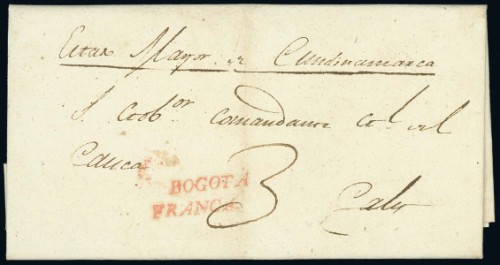 Estado Mayor de Cundinamarca
S. Gob.or Comandante
Cauca
BOGOTA
FRANCA
3
Cali